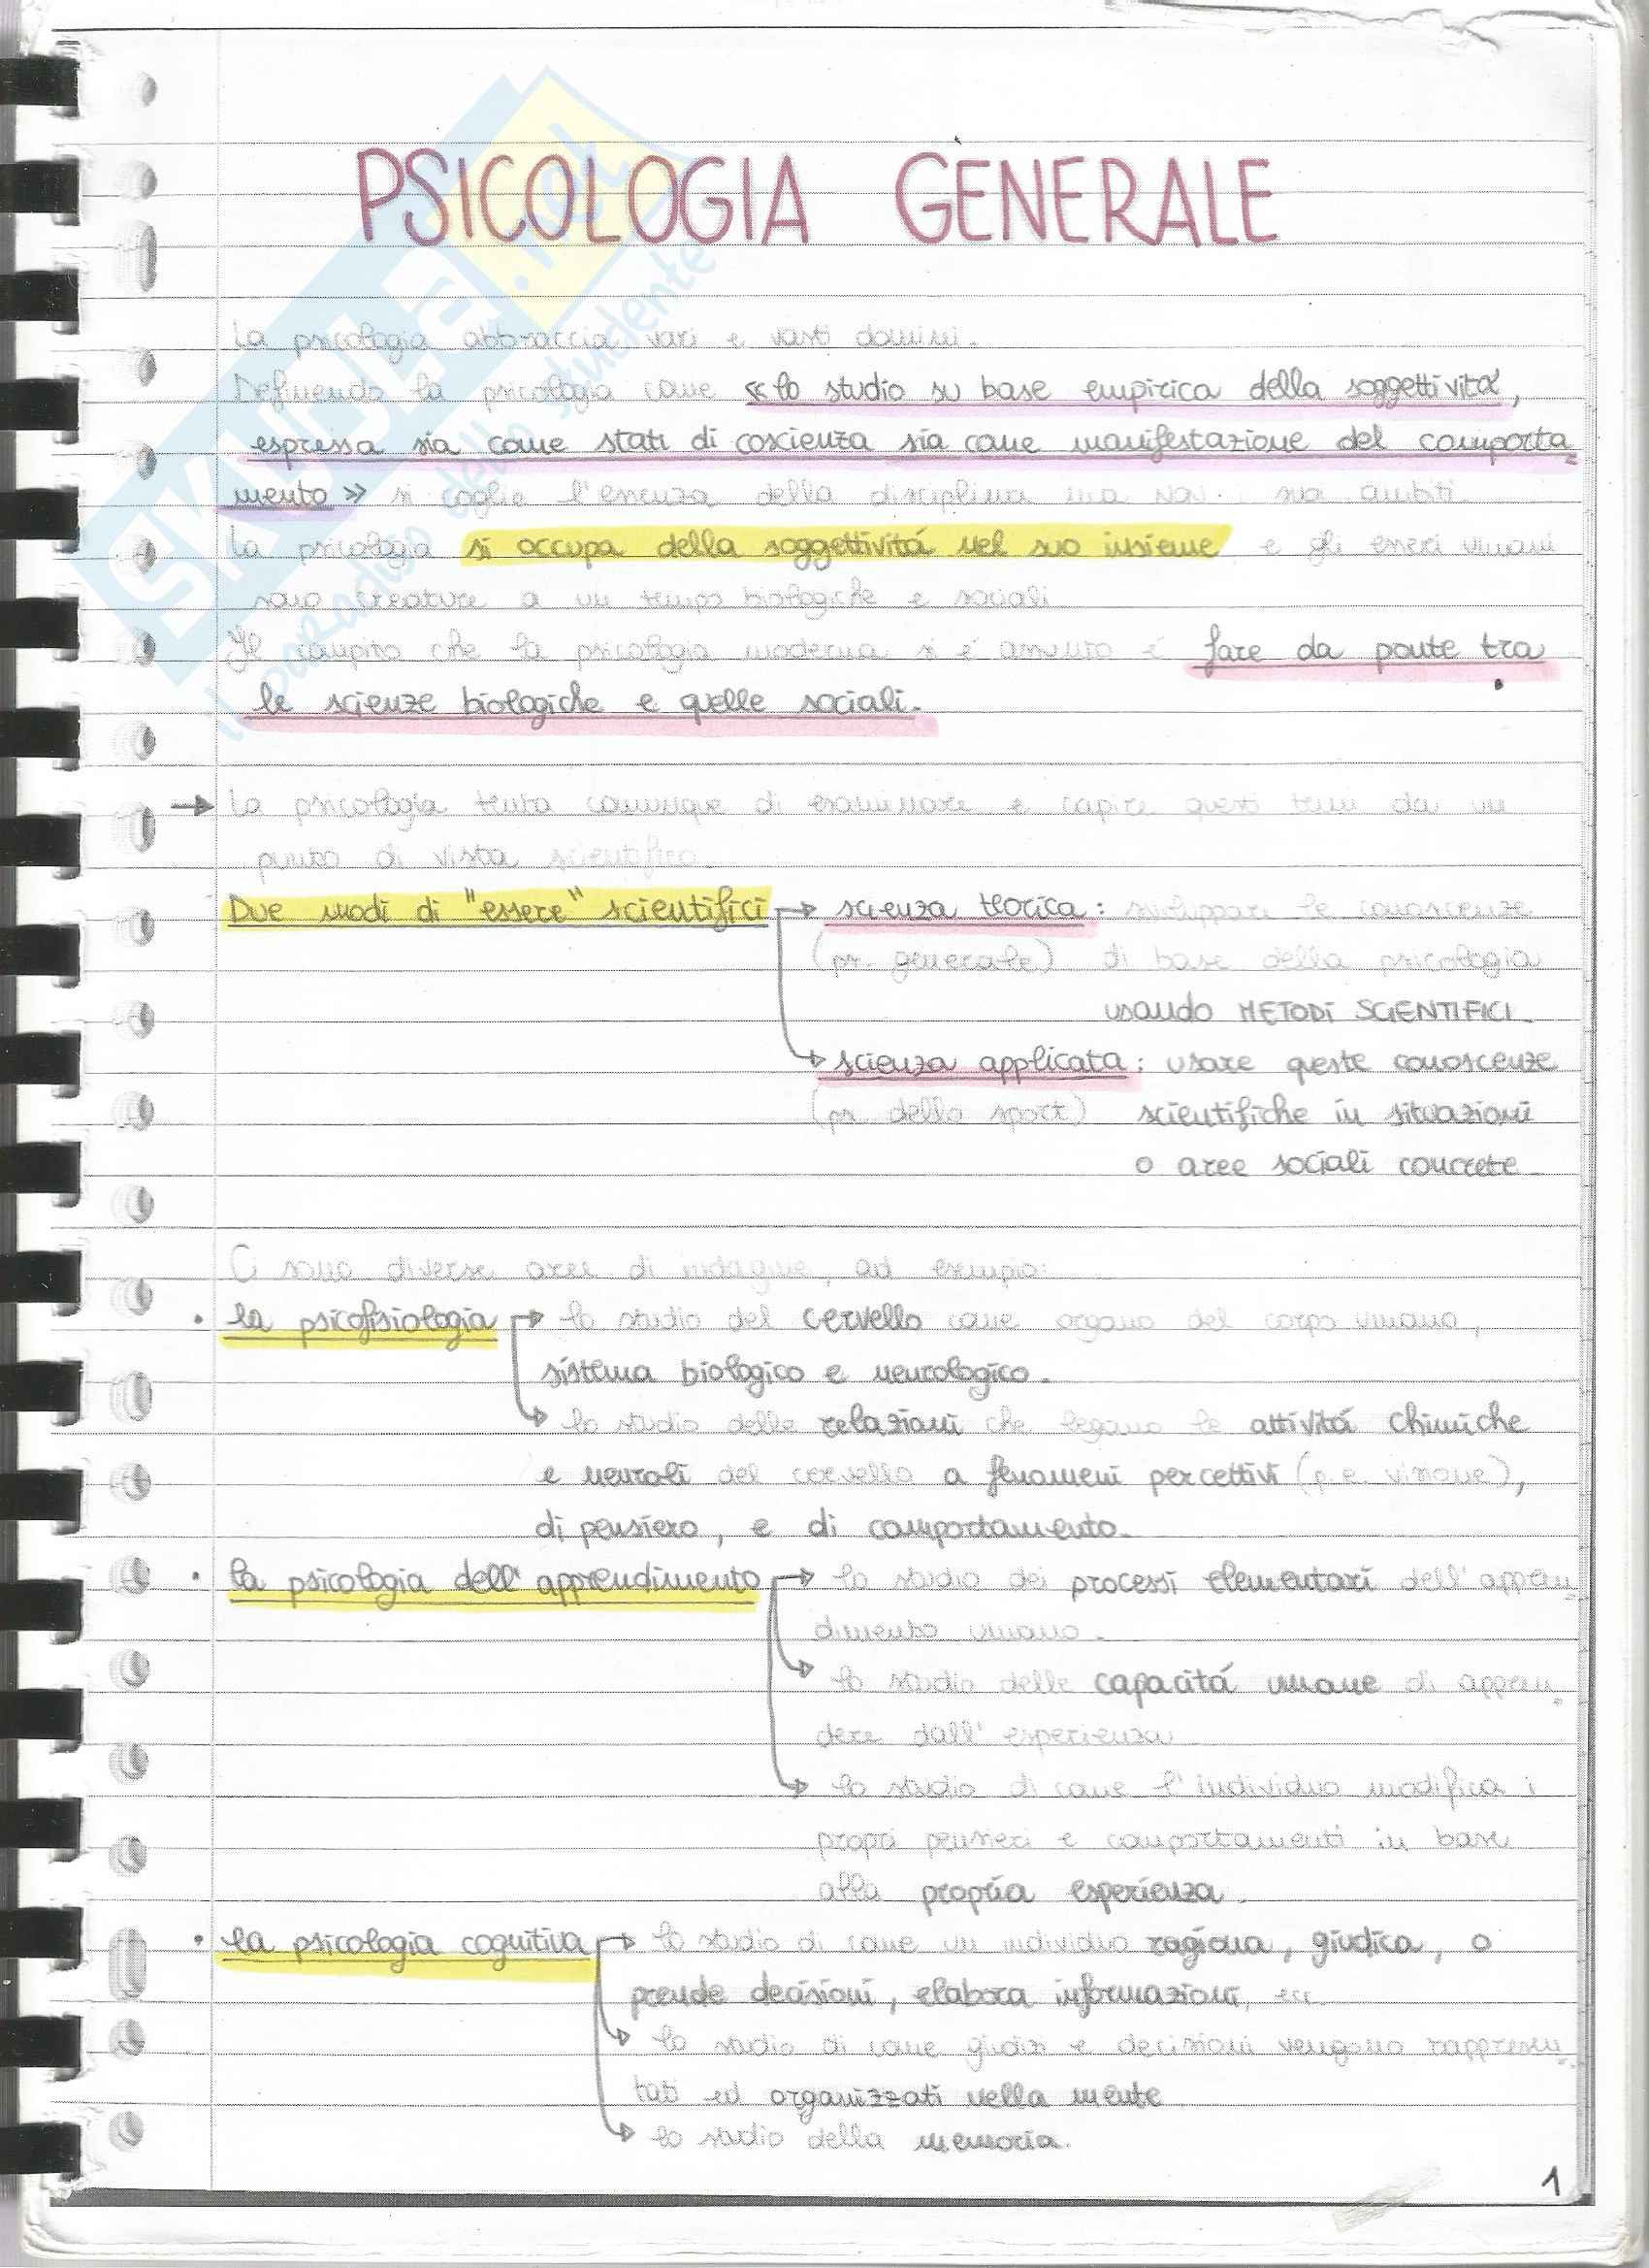 PSICOLOGIA GENERALE
La psicologia abbraccia vari e vasti domini.
Definendo la psicologia come «lo studio su base empirica della soggettività,
espressa sia come stati di coscienza sia come manifestazione del comporta=
mento» si coglie l'essenza della disciplina ma non suoi ambiti.
La psicologia si occupa della soggettivitá nel suo insieme e gli esseri umani
sono creature a un tempo biologiche e sociali.
Il compito che la psicologia moderna si é assunto é fare da ponte tra
le scienze biologiche e quelle sociali.
→ La psicologia tenta comunque di esaminare e capire questi temi da un
punto di vista scientifico.
Due modi di "essere" scientifici → scienza teorica: sviluppare le conoscenze
(ps. generale) di base della psicologia
usando METODI SCIENTIFICI.
→ scienza applicata: usare queste conoscenze
(ps. dello sport) scientifiche in situazioni
o aree sociali concrete.
Ci sono diverse aree di indagine, ad esempio:
• la psicofisiologia → lo studio del cervello come organo del corpo umano,
sistema biologico e neurologico.
→ lo studio delle relazioni che legano le attivitá chimiche
e neurali del cervello a fenomeni percettivi (p.e. visione),
di pensiero, e di comportamento.
• la psicologia dell'apprendimento → lo studio dei processi elementari dell'appren=
dimento umano.
→ lo studio delle capacitá umane di appren=
dere dall'esperienza.
→ lo studio di come l'individuo modifica i
propri pensieri e comportamenti in base
alla propria esperienza.
• la psicologia cognitiva → lo studio di come un individuo ragiona, giudica, o
prende decisioni, elabora informazioni, ecc.
→ lo studio di come giudizi e decisioni vengono rappresen=
tati ed organizzati nella mente
→ lo studio della memoria.
1
SKUOLA.net
il paradiso dello studente